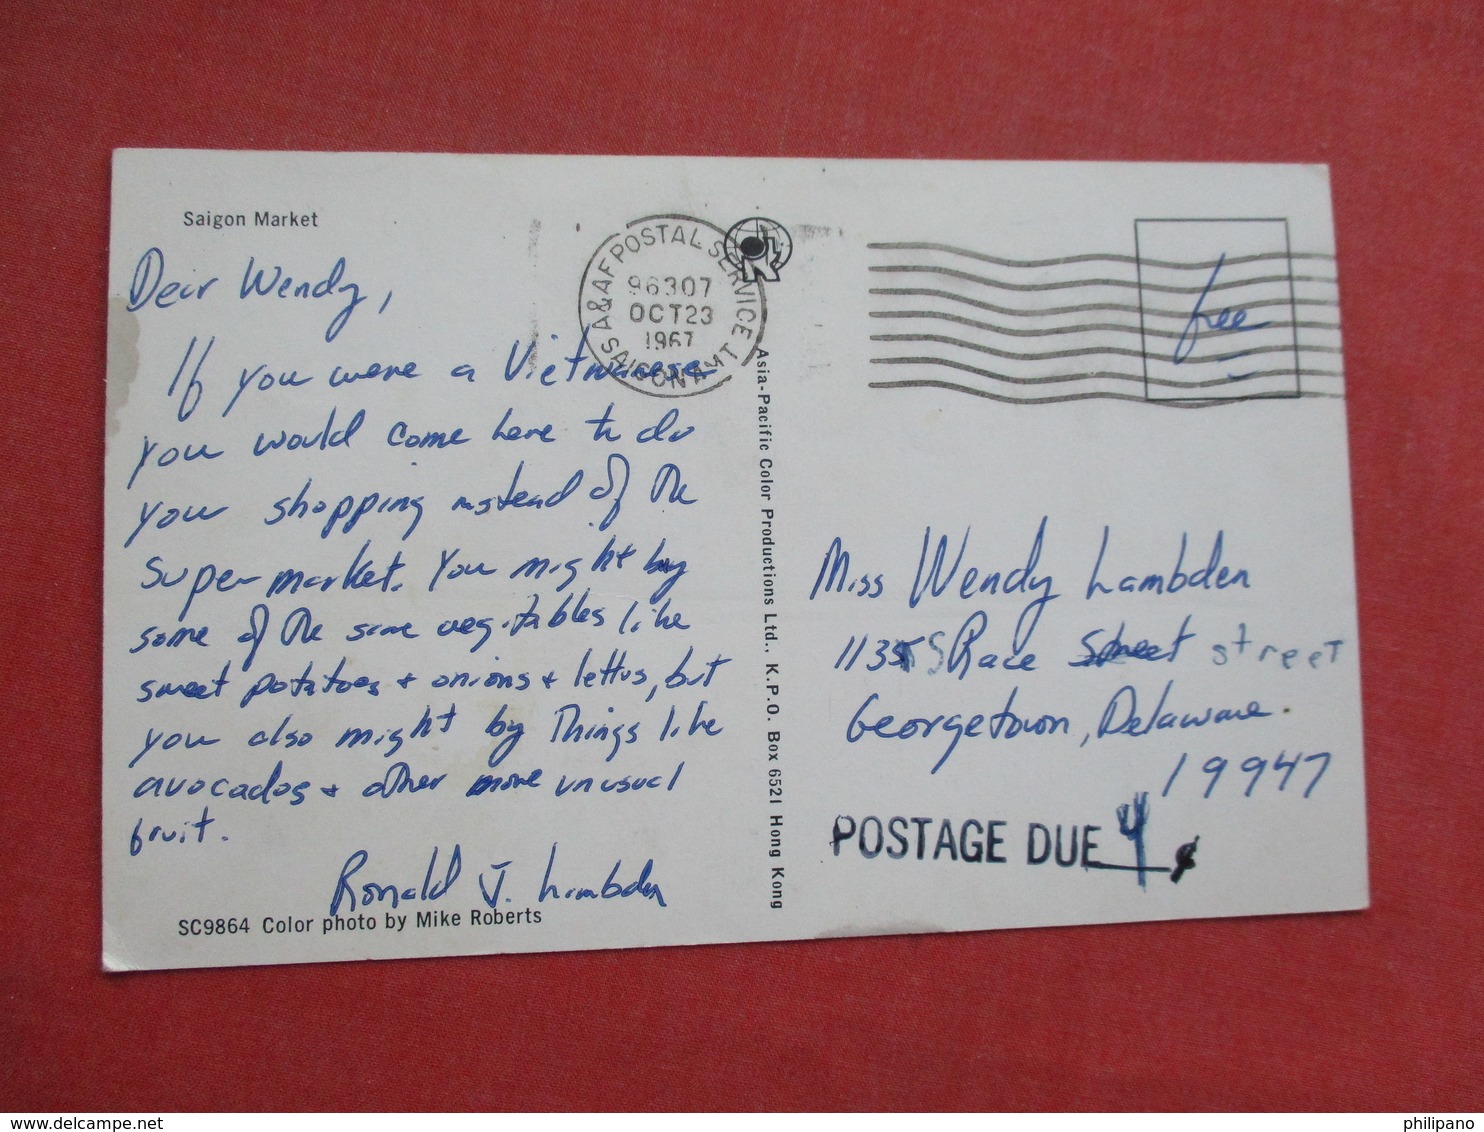 Saigon Market
Dear Wendy,
If you were a Vietnamese
you would come here to do
your shopping instead of the
super market. You might buy
some of the same vegitables like
sweet potatoes + onions + lettus, but
you also might by things like
avocados + other more unusual
fruit.
Ronald J. Lambden
SC9864 Color photo by Mike Roberts
A&AF POSTAL SERVICE
96307
OCT 23
1967
SAIGON
Asia-Pacific Color Productions Ltd., K.P.O. Box 6521 Hong Kong
free
Miss Wendy Lambden
113 S Race Street street
Georgetown, Delaware.
19947
POSTAGE DUE 4 ¢
philipano